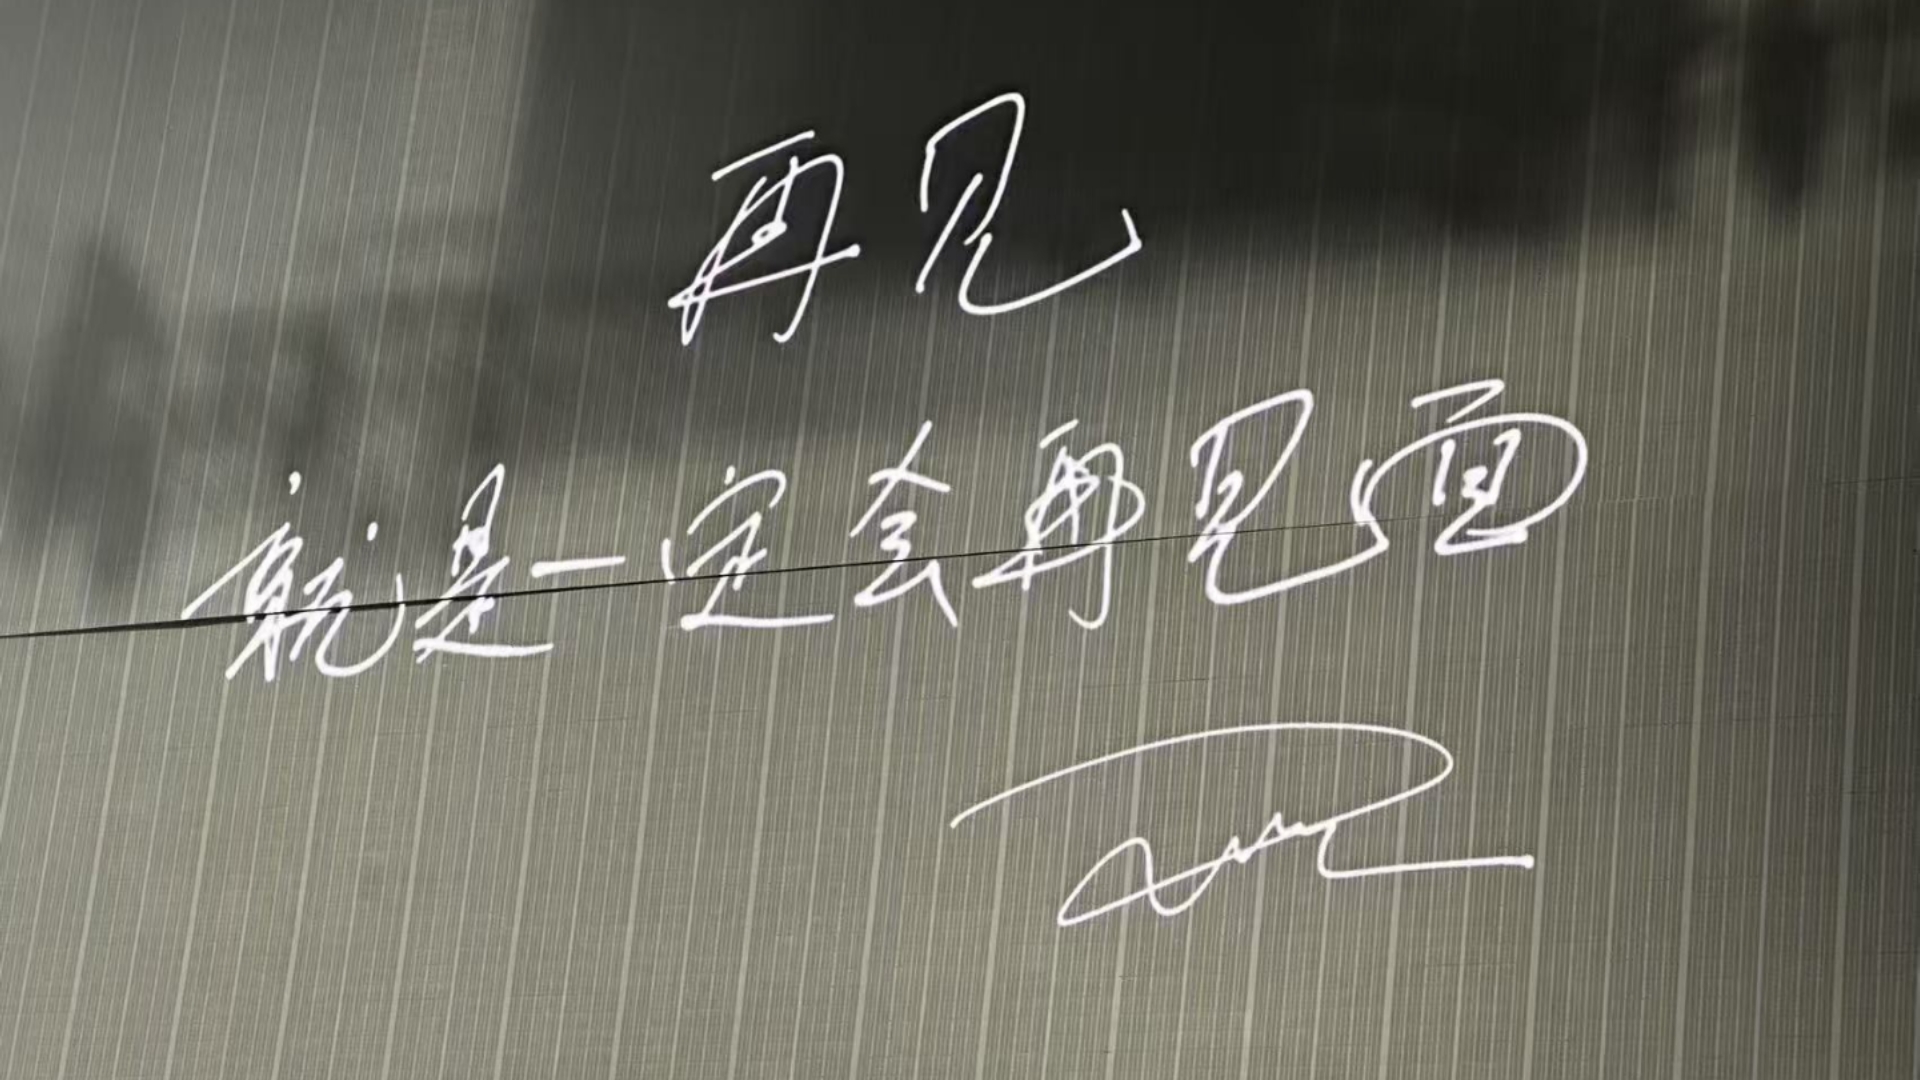 再见
就是一定会再见面